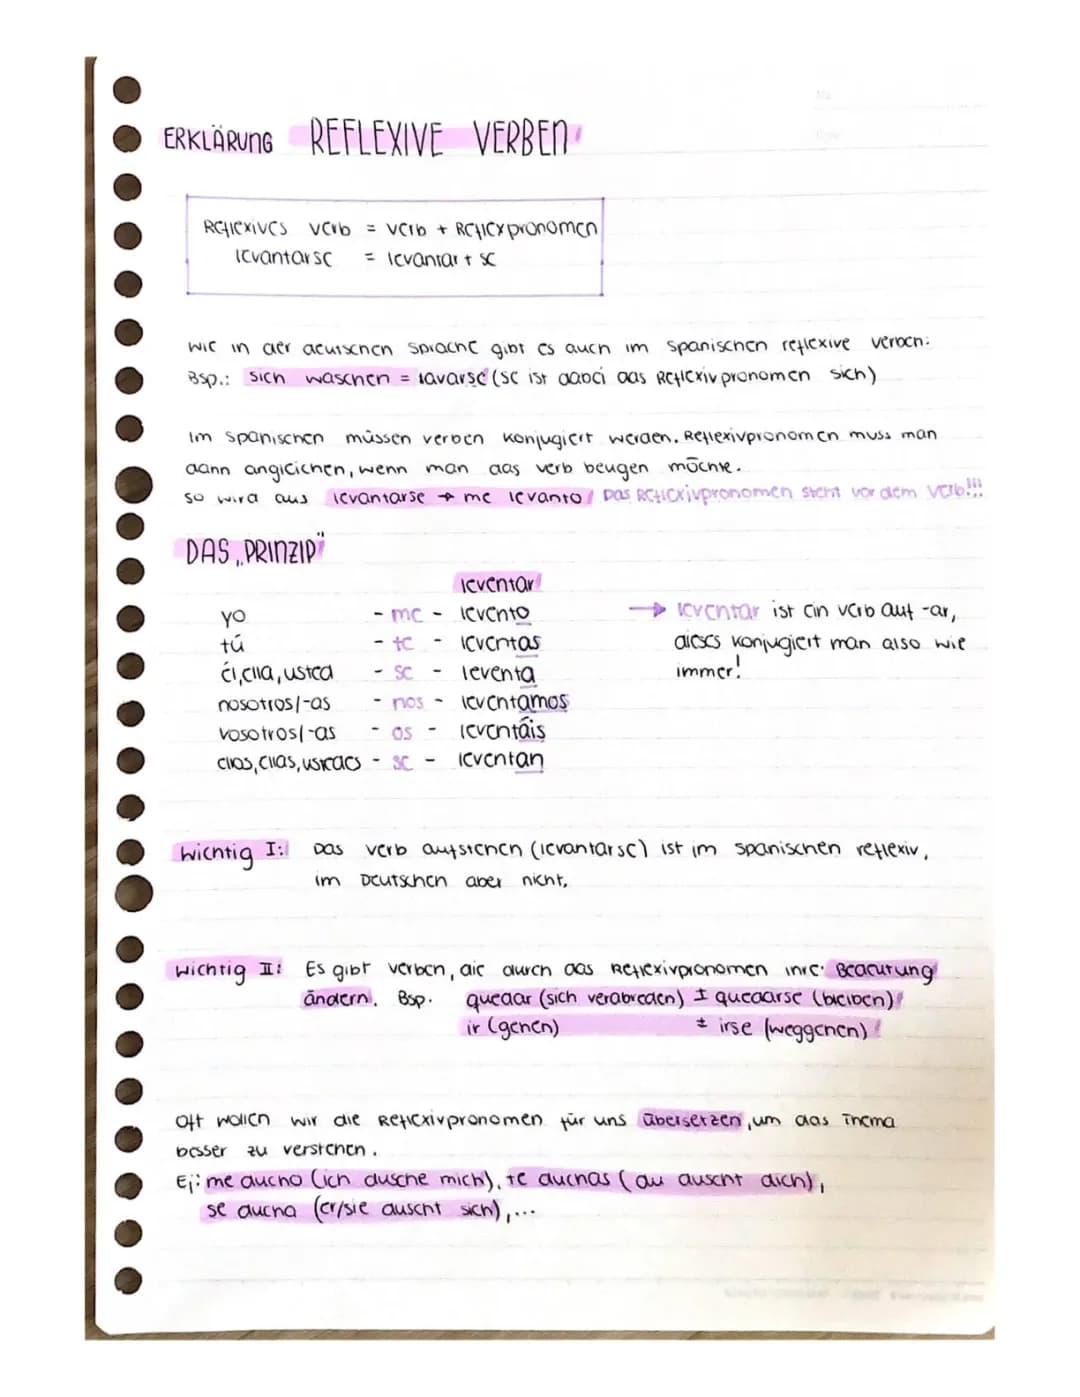 ERKLÄRUNG REFLEXIVE VERBEN
Reflexives verb = verb + Reflexpronomen
levantarse = levantar + se
Wie in der deutschen Sprache gibt es auch im Spanischen reflexive verben:
Bsp.: sich waschen = lavarse (se ist dabei das Reflexivpronomen sich)
Im Spanischen müssen verben konjugiert werden. Reflexivpronomen muss man
dann angleichen, wenn man das verb beugen möchte.
So wird aus levantarse → me levanto / Das Reflexivpronomen steht vor dem verb!!!
DAS „PRINZIP"
leventar
yo - me - levento
tú - te - leventas
él, ella, usted - se - leventa
nosotros/-as - nos - leventamos
vosotros/-as - os - leventáis
ellos, ellas, ustedes - se - leventan
→ leventar ist ein verb auf -ar,
dieses konjugiert man also wie
immer!
Wichtig I: Das verb aufstehen (levantarse) ist im spanischen reflexiv,
im Deutschen aber nicht.
Wichtig II: Es gibt verben, die durch das Reflexivpronomen ihre Bedeutung
ändern. Bsp. quedar (sich verabreden) ≠ quedarse (bleiben)
ir (gehen) ≠ irse (weggehen)
Oft wollen wir die Reflexivpronomen für uns übersetzen, um das Thema
besser zu verstehen.
Ej: me ducho (ich dusche mich), te duchas (du duscht dich),
se ducha (er/sie duscht sich), ...